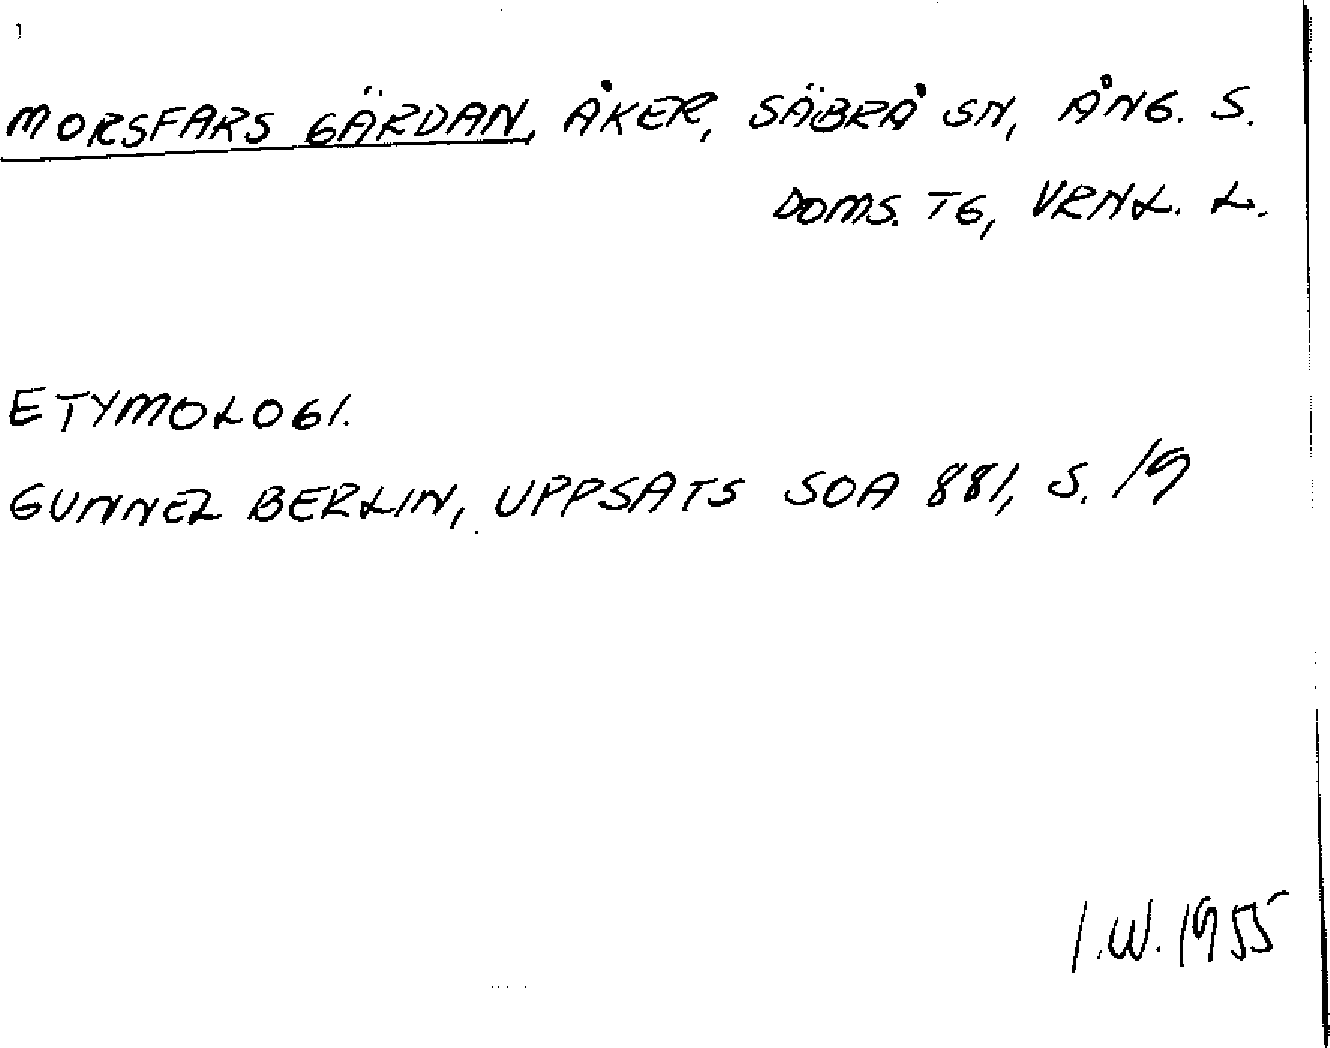 MORSFARS GÄRDAN, ÅKER, SÄBRÅ SN, ÅNG. S.
DOMS. TG, VRNL. L.
ETYMOLOGI.
GUNNEL BERLIN, UPPSATS SOA 881, S. 19
I.W. 1955